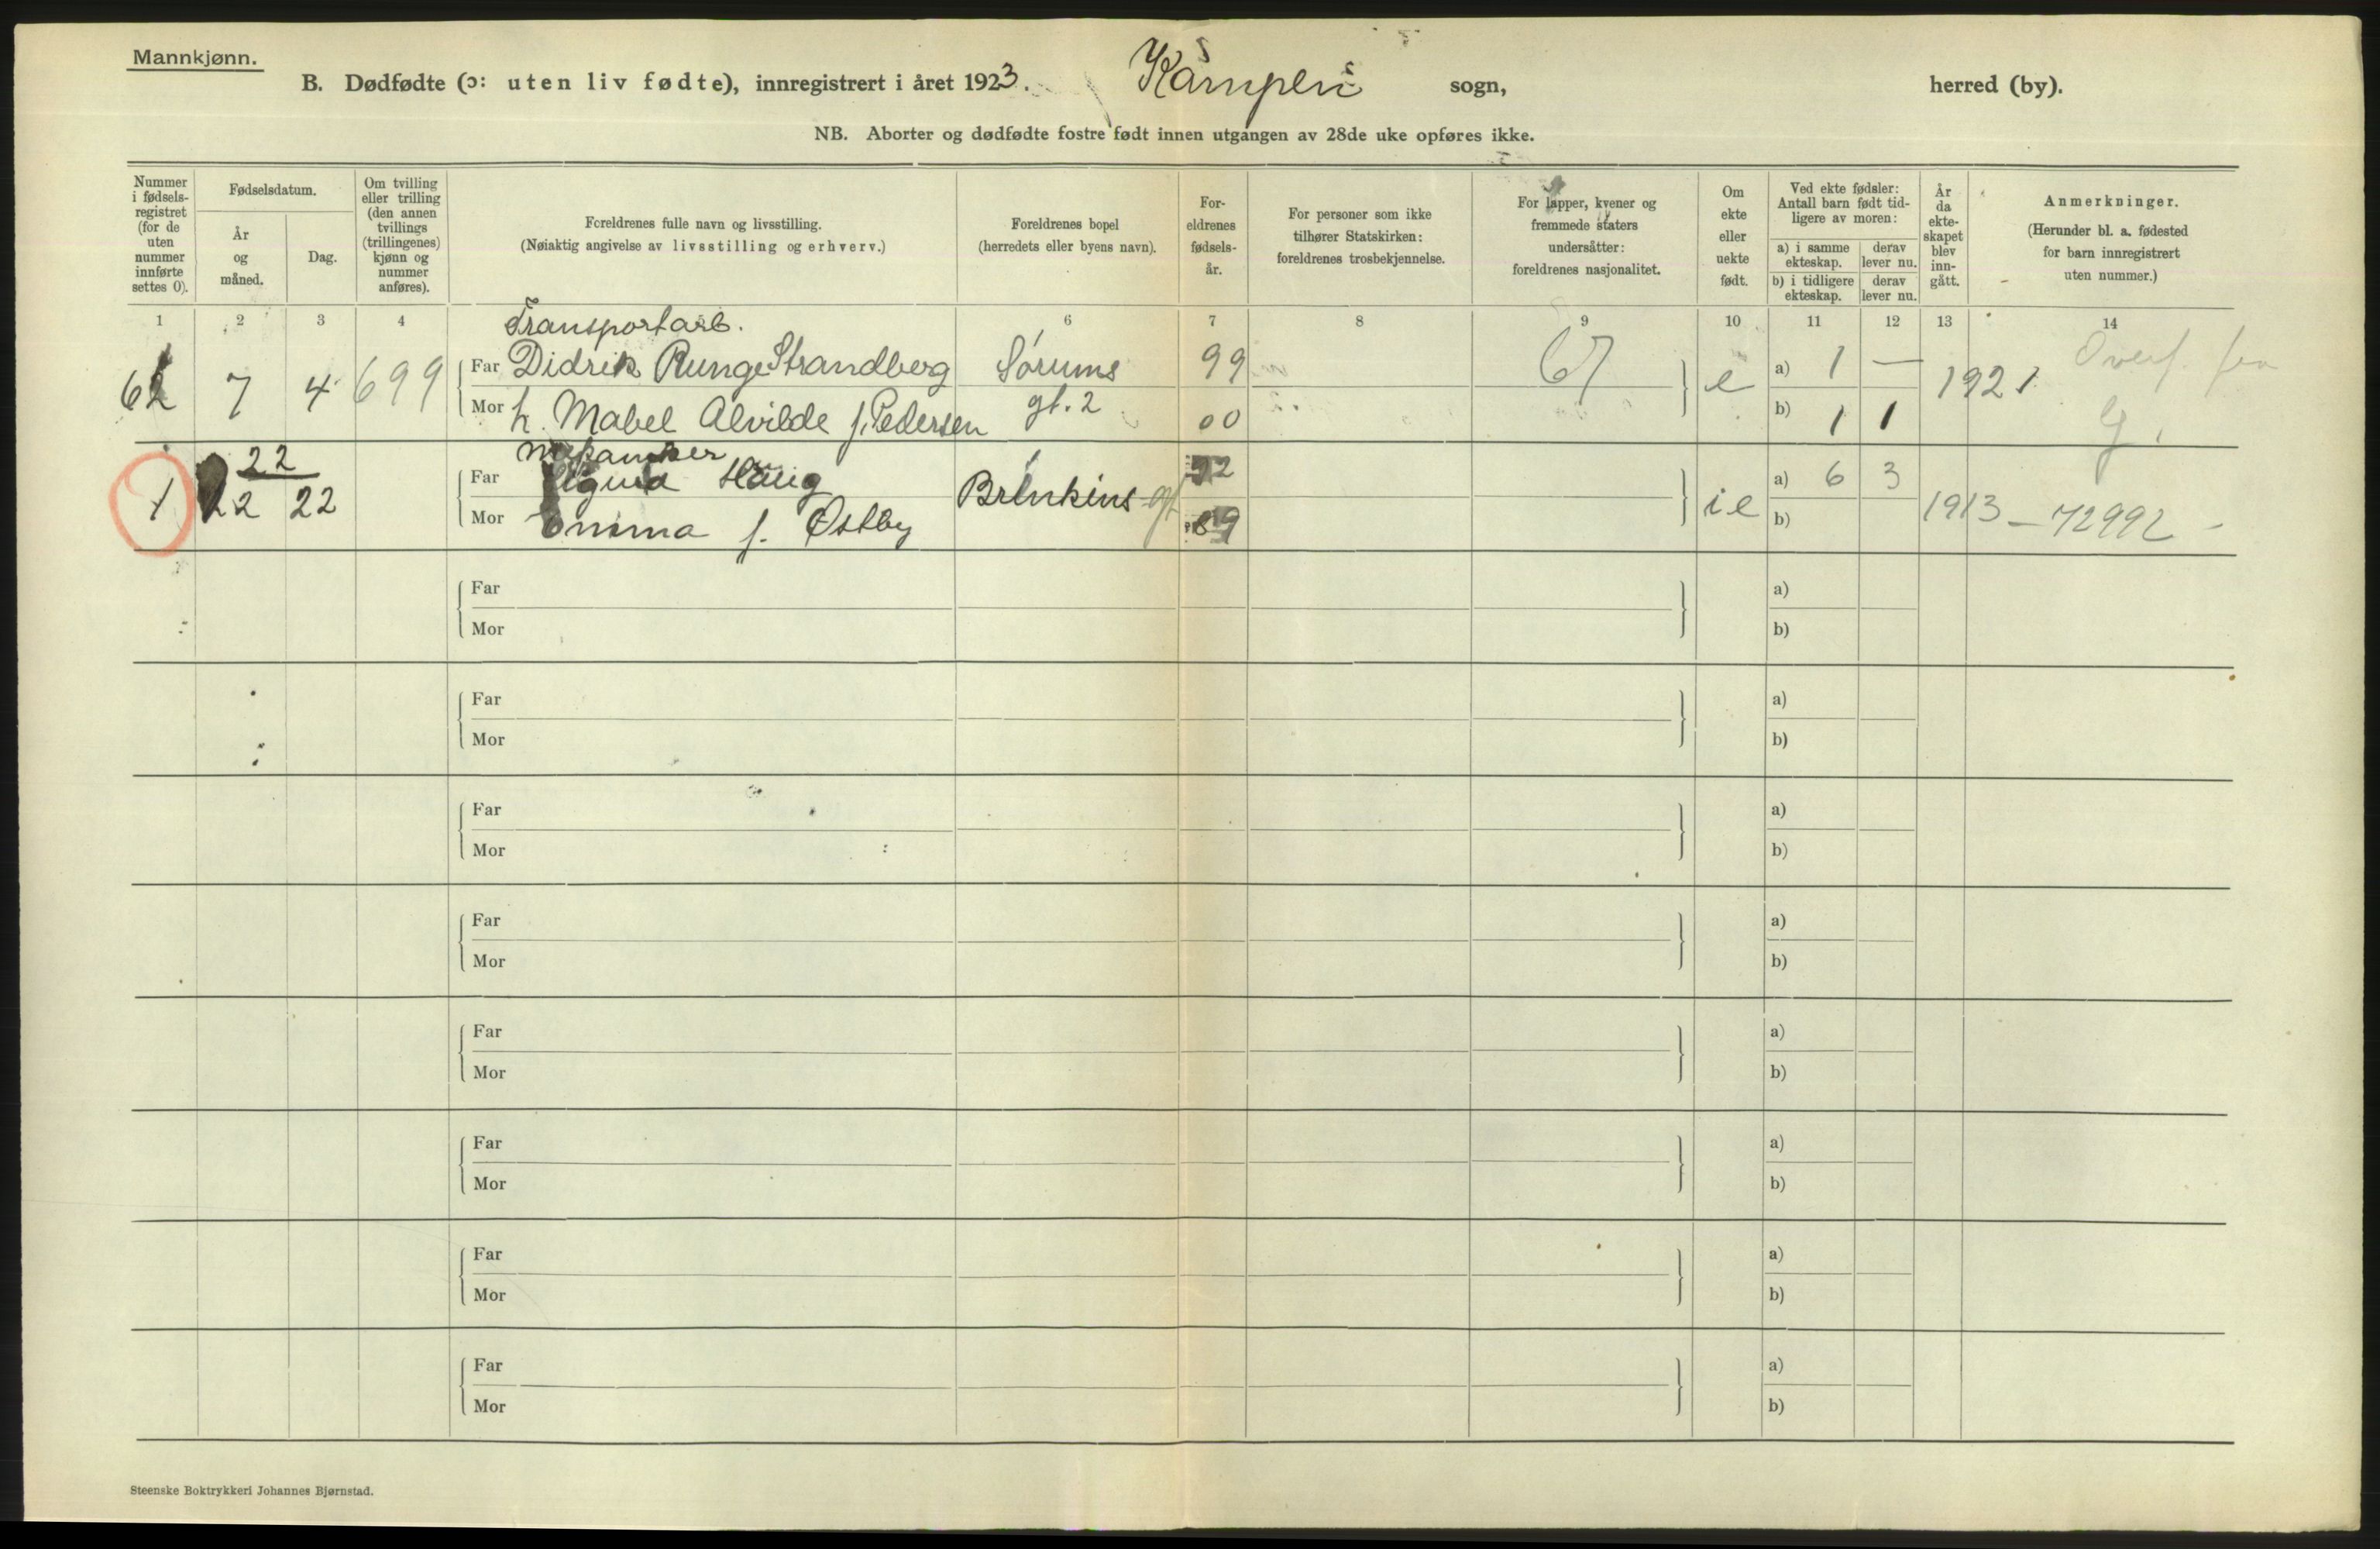 Mannkjønn.
B. Dødfødte (ɔ: uten liv fødte), innregistrert i året 1923. Kampen sogn, herred (by).
NB. Aborter og dødfødte fostre født innen utgangen av 28de uke opføres ikke.
Nummer i fødsels-registret (for de uten nummer innførte settes 0).
Fødselsdatum.
År og måned.
Dag.
Om tvilling eller trilling (den annen tvillings (trillingenes) kjønn og nummer anføres).
Foreldrenes fulle navn og livsstilling.
(Nøiaktig angivelse av livsstilling og erhverv.)
Foreldrenes bopel
(herredets eller byens navn).
For-eldrenes fødsels-år.
For personer som ikke tilhører Statskirken: foreldrenes trosbekjennelse.
For lapper, kvener og fremmede staters undersåtter: foreldrenes nasjonalitet.
Om ekte eller uekte født.
Ved ekte fødsler: Antall barn født tid-ligere av moren:
a) i samme ekteskap.
derav lever nu.
b) i tidligere ekteskap.
derav lever nu.
År da ekte-skapet blev inn-gått.
Anmerkninger.
(Herunder bl. a. fødested for barn innregistrert uten nummer.)
1 2 3 4 6 7 8 9 10 11 12 13 14
Transportarb.
62 7 4 699 Far Didrik Runge Strandberg Sørums 99 67 e a) 1 — 1921 Overf. fra
Mor h. Mabel Alvilde f. Pedersen gt. 2 00 b) 1 1 G.
22 mekaniker
1 22 Far Haug Brinkins gt 92 ie a) 6 3 1913 — 72992 —
Mor Emma f. Østby 89 b)
Far a)
Mor b)
Far a)
Mor b)
Far a)
Mor b)
Far a)
Mor b)
Far a)
Mor b)
Far a)
Mor b)
Far a)
Mor b)
Far a)
Mor b)
Steenske Boktrykkeri Johannes Bjørnstad.